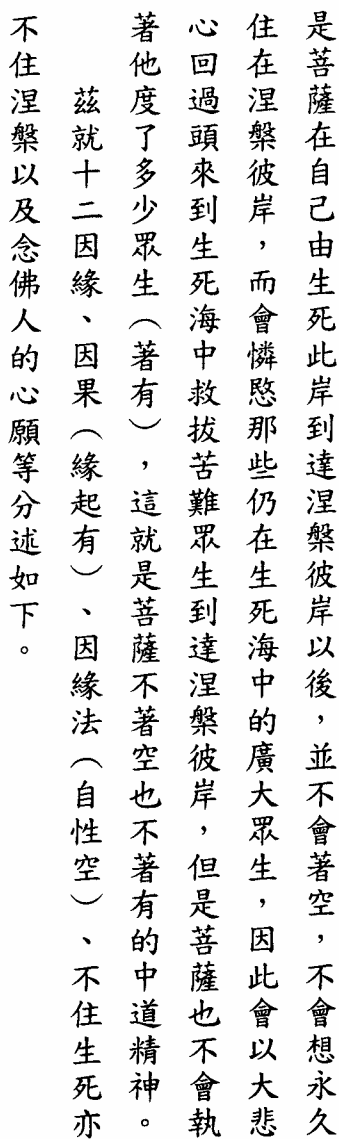 是菩薩在自己由生死此岸到達涅槃彼岸以後，並不會著空，不會想永久
住在涅槃彼岸，而會憐愍那些仍在生死海中的廣大眾生，因此會以大悲
心回過頭來到生死海中救拔苦難眾生到達涅槃彼岸，但是菩薩也不會執
著他度了多少眾生（著有），這就是菩薩不著空也不著有的中道精神。
茲就十二因緣、因果（緣起有）、因緣法（自性空）、不住生死亦
不住涅槃以及念佛人的心願等分述如下。